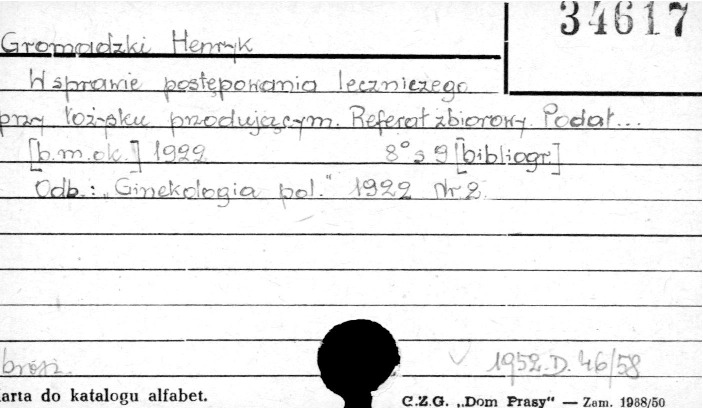 34617
Gromadzki Henryk
W sprawie postępowania leczniczego
przy łożysku przodującym. Referat zbiorowy. Podał...
[b.m.ok.] 1922 8° s 9 [bibliogr.]
Odb.: „Ginekologia pol." 1922 Nr 2.
brosz.
1952.D. 46/58
arta do katalogu alfabet.
C.Z.G. „Dom Prasy" — Zam. 1988/50